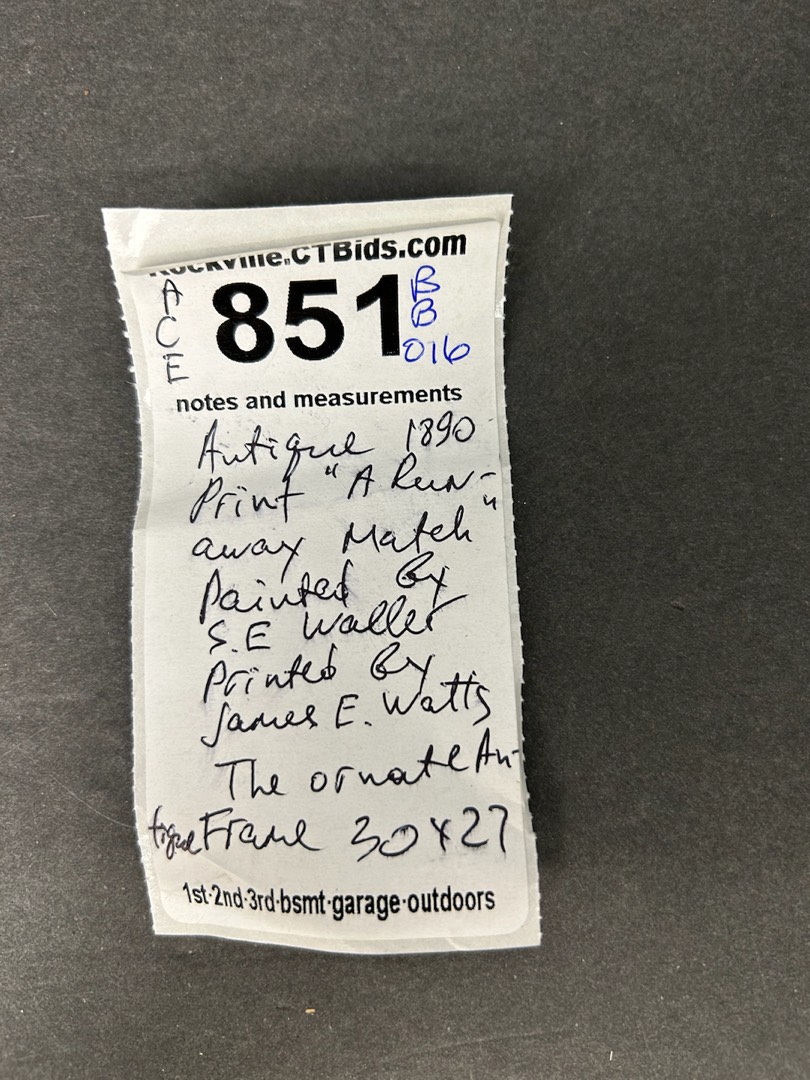 Rockville.CTBids.com
A
C
E
851
B
B
016
notes and measurements
Antique 1890
Print "A Run-
away Match"
Painted by
S.E Waller
Printed By
James E. Watts
The ornate An-
tique Frame 30x27
1st·2nd·3rd·bsmt·garage·outdoors